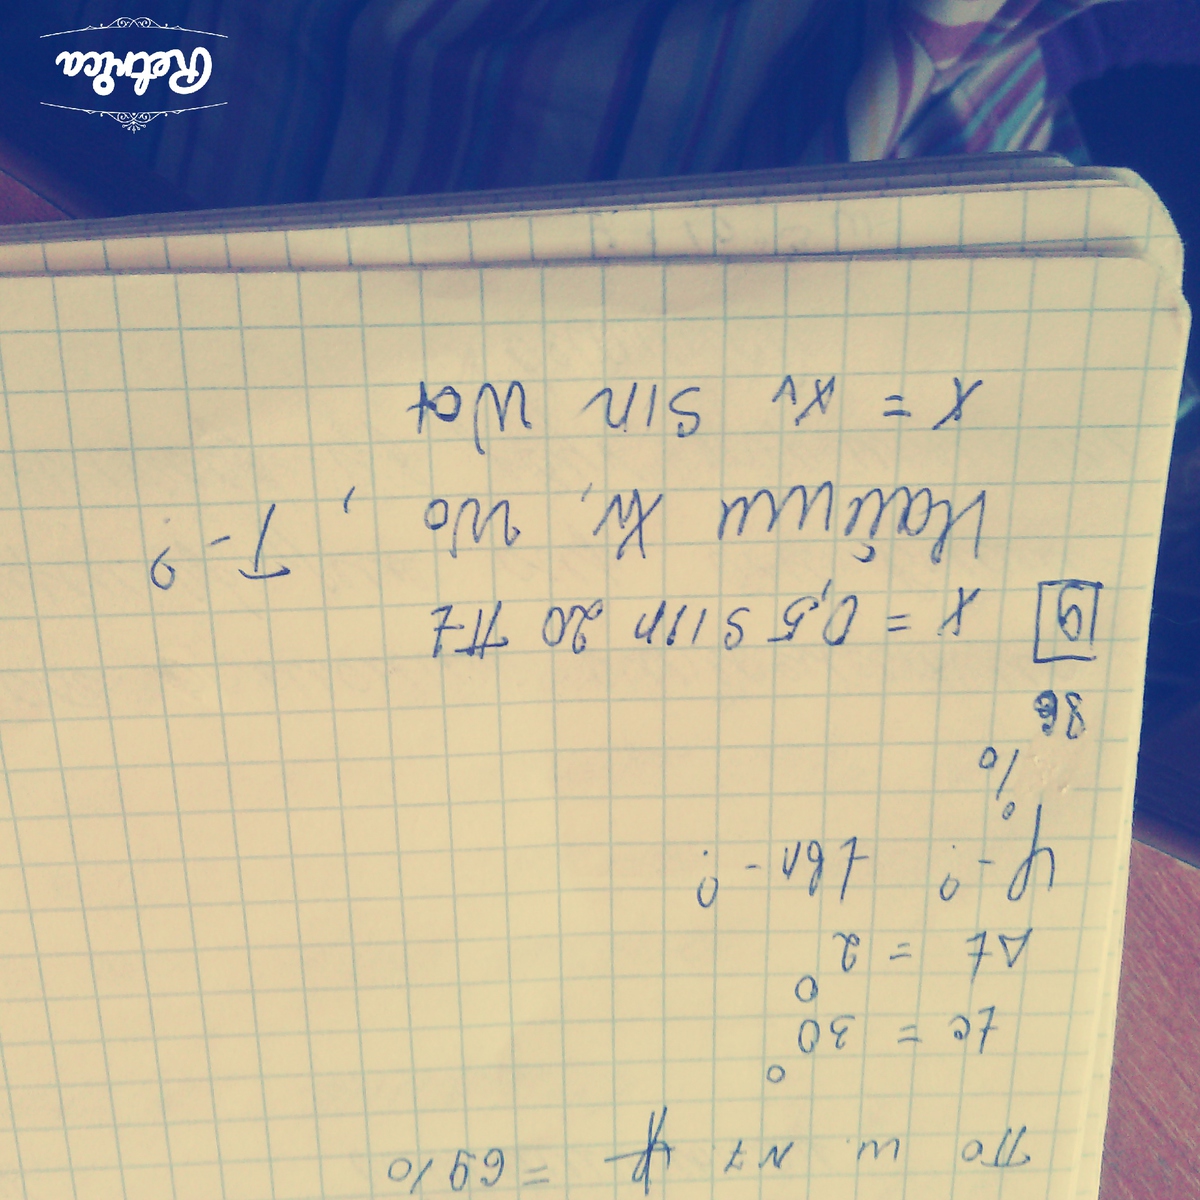 по ш. N7 φ = 69%
tc = 30°
Δt = 2°
φ - ? tвл - ?
%
86
19 x = 0,5 sin 20 πt
Найти xv, wo, T - ?
x = xv sin wot
Retrica